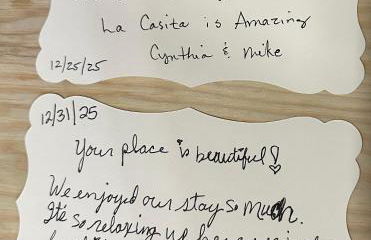 La Casita is Amazing
Cynthia & Mike
12/25/25
12/31/25
Your place is beautiful!
We enjoyed our stay so much.
It's so relaxing up here